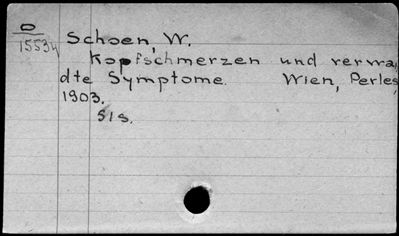 O
15534
Schoen, W.
Kopfschmerzen und verwa,
dte Symptome. Wien, Perles,
1903.
51s.